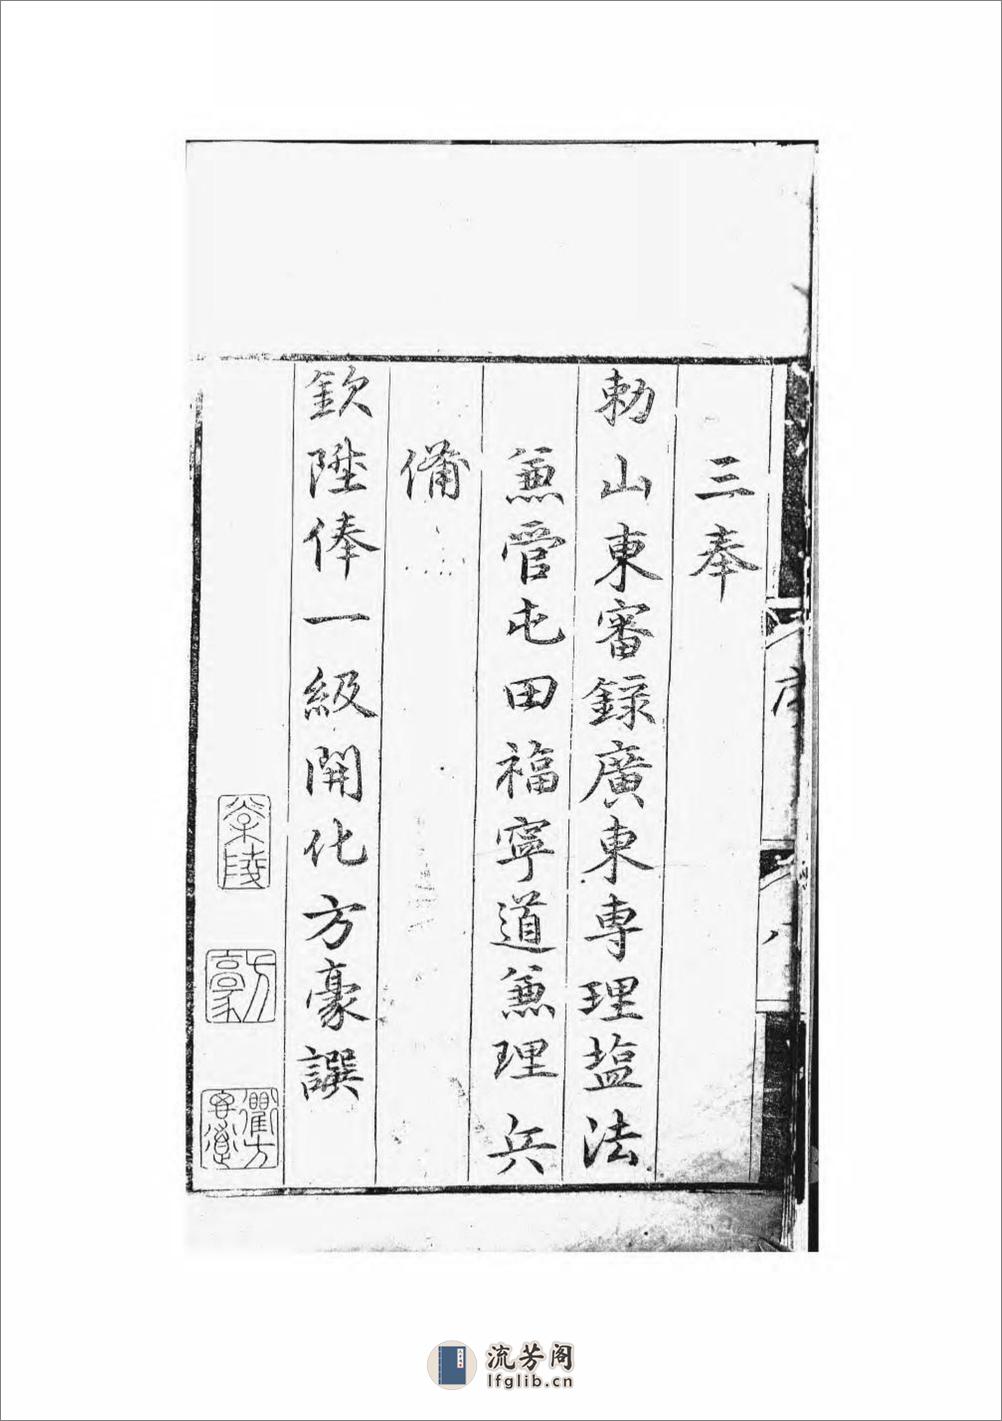 三奉
勑山東審錄廣東專理塩法
兼管屯田福寧道兼理兵
備
欽陞俸一級開化方豪譔
棠陵
方豪
序
流芳阁
lfglib.cn